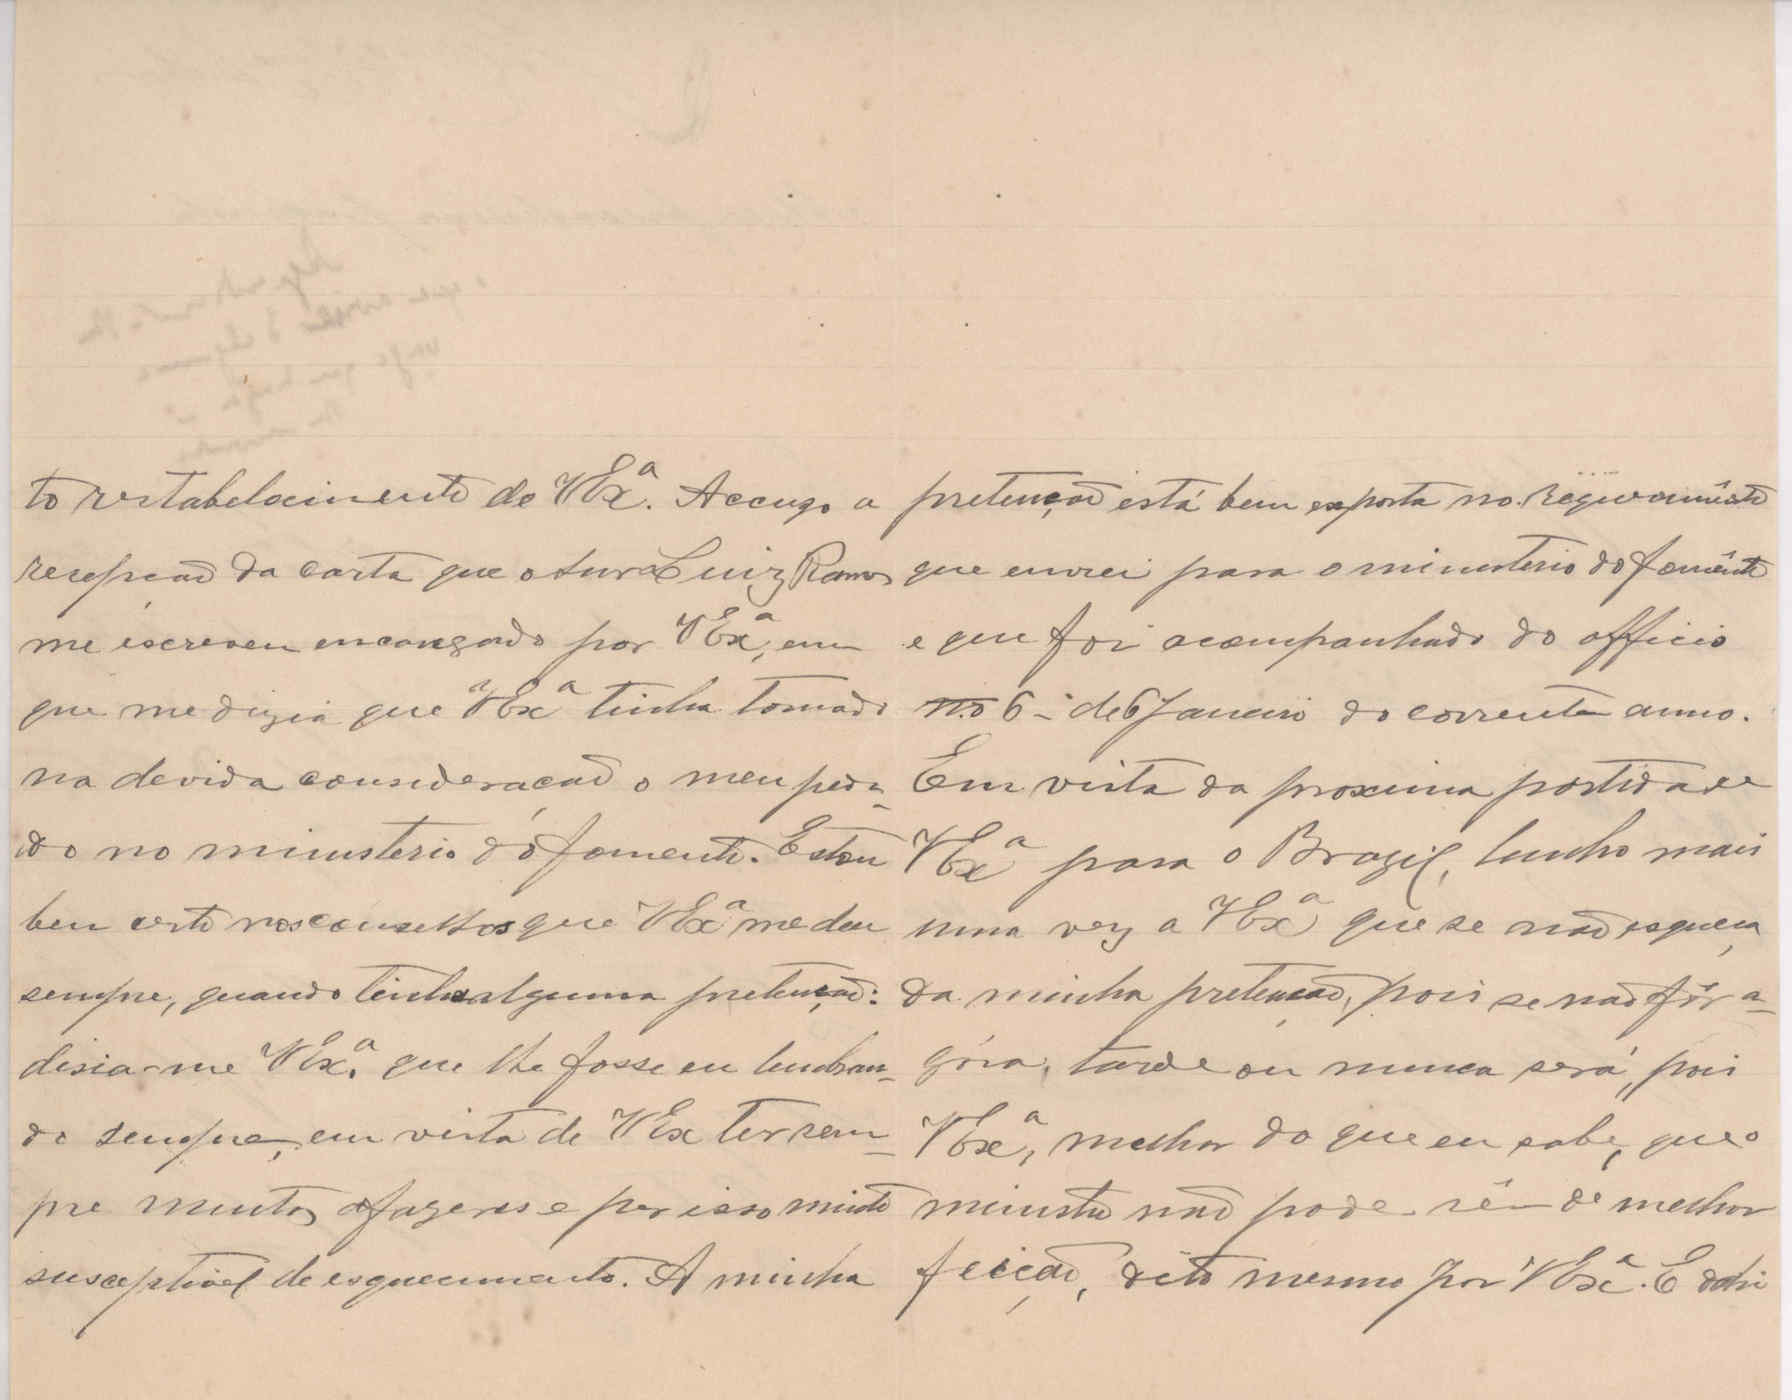 to restabelecimento de VExª. Accuzo a
recepção da carta que o snr Luiz Ramos
me escreveu encarregado por VExª, em
que me dizia que VExª tinha tomado
na devida consideração o meu pedi-
do no ministerio do fomento. Estou
bem certo nos conselhos que VExª me deu
sempre, quando tinha alguma pretenção:
disia-me VExª. que lhe fosse eu lembran-
do sempre, em vista de VEx ter sem-
pre muitos afazeres e por isso muito
susceptivel de esquecimento. A minha
pretenção está bem exposta no requerimento
que enviei para o ministerio do fomento
e que foi acompanhado do officio
n.o 6 - de 6 Janeiro do corrente anno.
Em vista da proxima partida de
VExª para o Brazil, lembro mais
uma vez a VExª que se não esqueça
da minha pretenção, pois se não fôr a-
góra, tarde ou nunca será, pois
VExª, melhor do que eu sabe, que o
ministro não pode sêr de melhor
feição, dito mesmo por VExª. E dahi